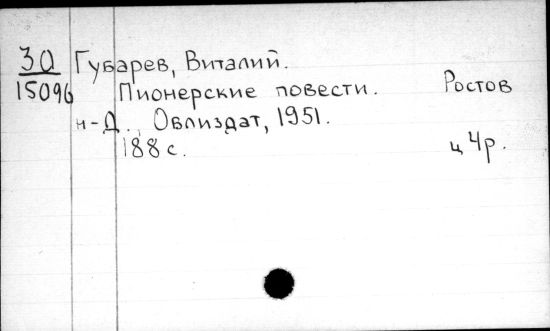 30 Губарев, Виталий.
15096 Пионерские повести. Ростов
н-Д., Облиздат, 1951.
188 с. ц 4р.